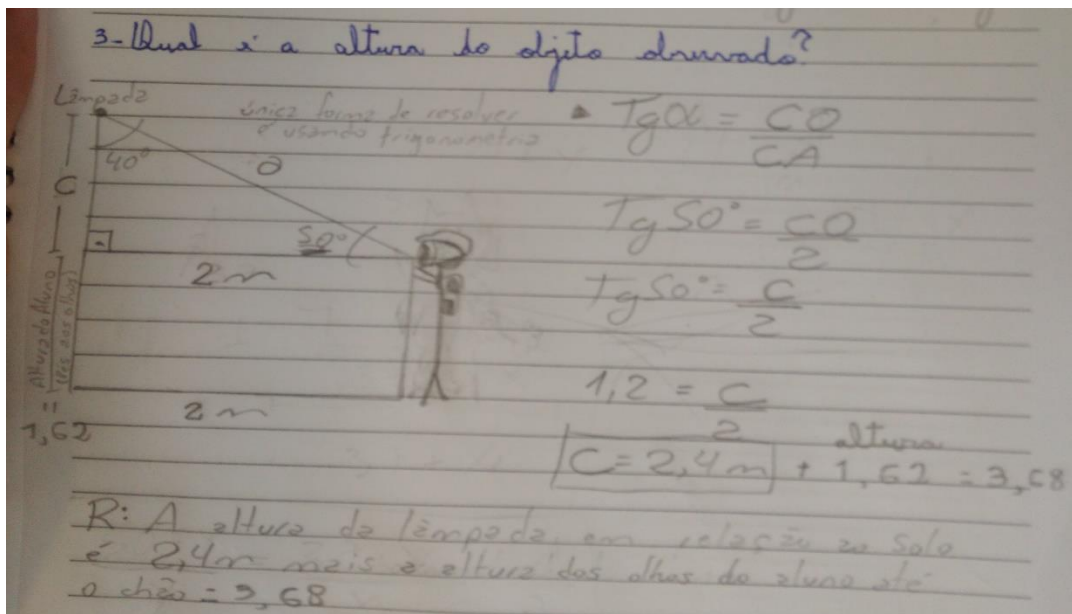 3- Qual é a altura do objeto observado?
Lâmpada
única forma de resolver
é usando trigonometria
40°
a
C
50°
2 m
Altura do Aluno
(pés aos olhos)
=
1,62
2 m
Tgα = CO
CA
Tg 50° = CO
2
Tg 50° = C
2
1,2 = C
2
altura
C = 2,4 m + 1,62 = 3,68
R: A altura da lâmpada em relação ao solo
é 2,4m mais a altura dos olhos do aluno até
o chão = 3,68